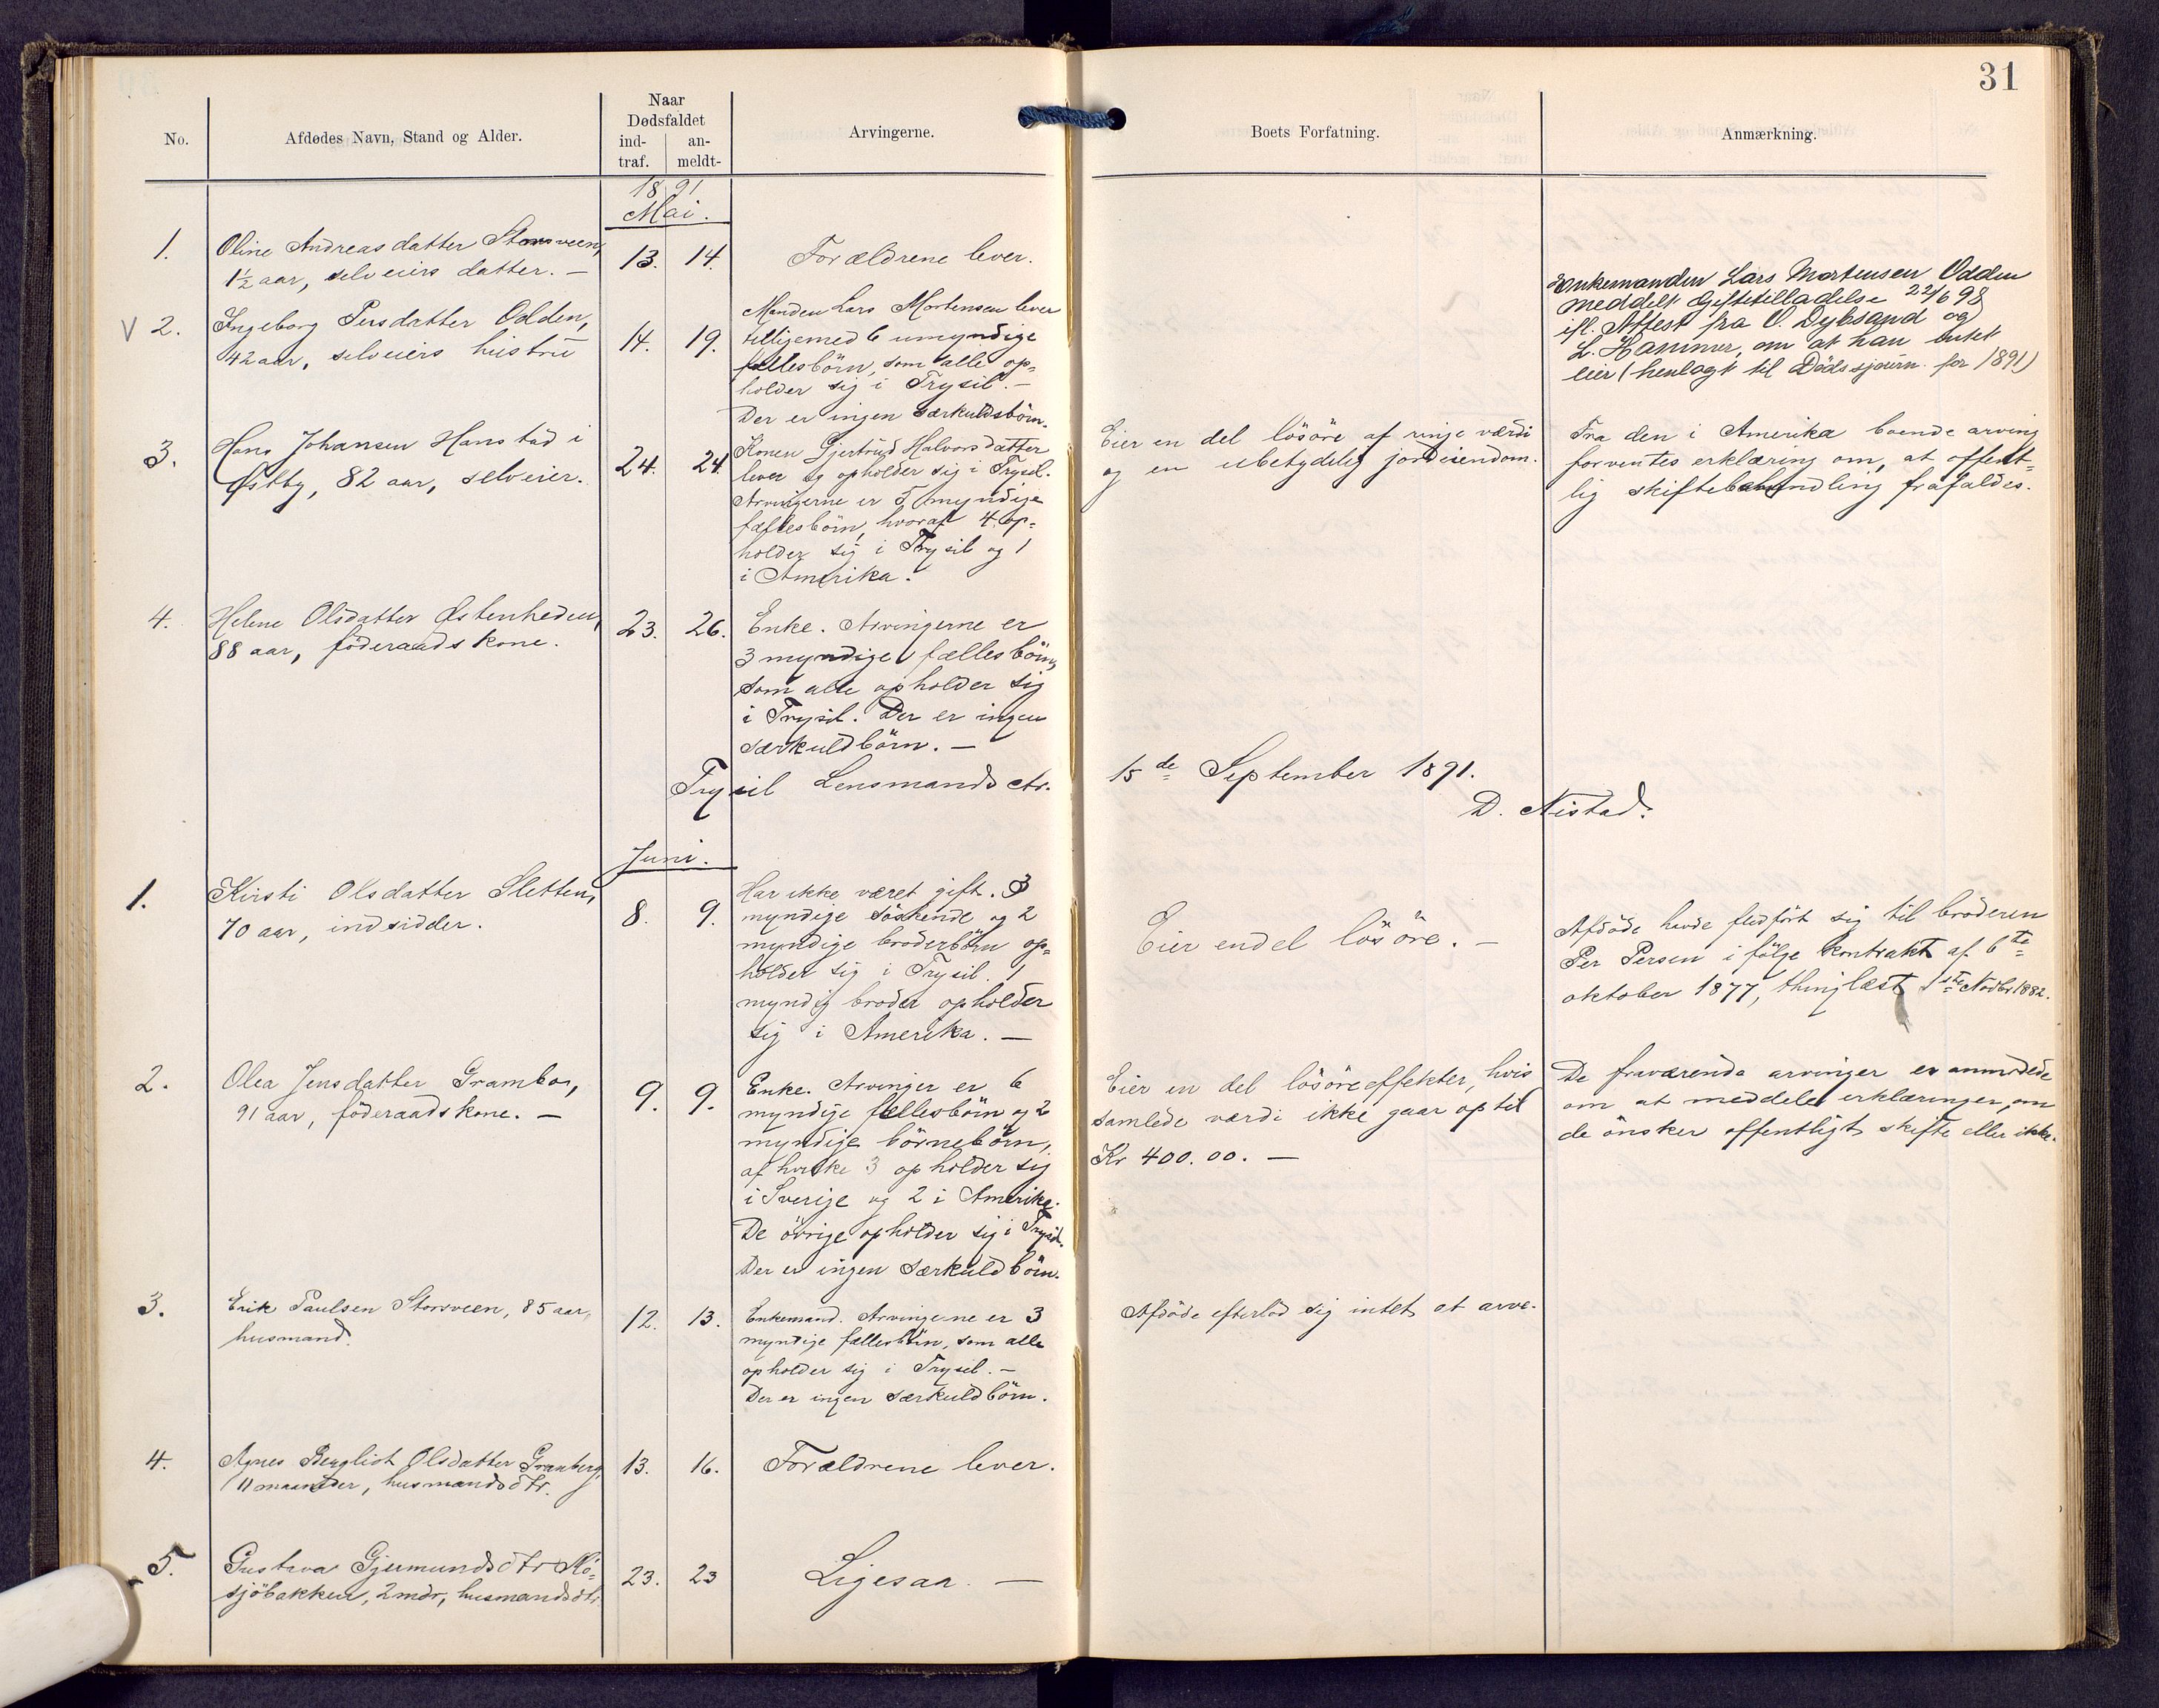 31
No.
Afdødes Navn, Stand og Alder.
Naar
Dødsfaldet
ind-
traf.
an-
meldt-
Arvingerne.
Boets Forfatning.
Anmærkning.
1891
Mai.
1.
Oline Andreasdatter Storsveen,
1½ aar, selveiers datter. —
13.
14.
Forældrene lever.
V 2.
Ingeborg Persdatter Odden,
42 aar, selveiers hustru
14.
19.
Manden Lars Mortensen lever
tilligemed 6 umyndige
fællesbörn, som alle op=
holder sig i Trysil. —
Der er ingen særkuldsbörn.
Enkemanden Lars Mortensen Odden
meddelt Giftetilladelse 22/6 98
ifl. Attest fra O. Dybsand og
L. Hammer, om at han intet
eier (henlagt til Dödsjourn. for 1891)
3.
Hans Johansen Hanstad i
Østby, 82 aar, selveier.
24.
24
Konen Gjertrud Halvorsdatter
lever og opholder sig i Trysil.
Arvingerne er 5 myndige
fællesbörn, hvoraf 4 op=
holder sig i Trysil og 1
i Amerika.
Eier en del lösöre af ringe værdi
og en ubetydelig jordeiendom.
Fra den i Amerika boende arving
forventes erklæring om, at offent=
lig skiftebehandling frafaldes.
4.
Helene Olsdatter Østenheden,
88 aar, föderaadskone.
23.
26.
Enke. Arvingerne er
3 myndige fællesbörn,
som alle opholder sig
i Trysil. Der er ingen
særkuldbörn. —
Trysil Lensmandsktr.
15de September 1891.
D. Nistad.
Juni.
1.
Kirsti Olsdatter Sletten,
70 aar, indsidder.
8.
9.
Har ikke været gift. 3
myndige söskende og 2
myndige broderbörn op=
holder sig i Trysil. 1
myndig broder opholder
sig i Amerika. —
Eier endel lösöre. —
Afdöde havde fledfört sig til broderen
Per Persen i fölge kontrakt af 6te
oktober 1877, thinglæst 1ste Novbr 1882.
2.
Olea Jensdatter Grambo,
91 aar, föderaadskone. —
9.
9.
Enke. Arvinger er 6
myndige fællesbörn og 2
myndige börnebörn,
af hvilke 3 opholder sig
i Sverige og 2 i Amerika.
De övrige opholder sig i Trysil.
Der er ingen særkuldbörn.
Eier en del lösöreeffekter, hvis
samlede værdi ikke gaar op til
Kr 400.00. —
De fraværende arvinger er anmodede
om at meddele erklæringer, om
de önsker offentligt skifte eller ikke.
3.
Erik Paulsen Storsveen, 85 aar,
husmand.
12.
13.
Enkemand. Arvingerne er 3
myndige fællesbörn, som alle
opholder sig i Trysil. —
Der er ingen særkuldbörn.
Afdöde efterlod sig intet at arve.
4.
Agnes Bergliot Olsdatter Granberg
11 maaneder, husmandsdtr.
13.
16.
Forældrene lever.
5.
Gustava Gjermundsdtr
sjöbakken, 2 mdr, husmandsdtr.
23.
23
Ligesaa. —